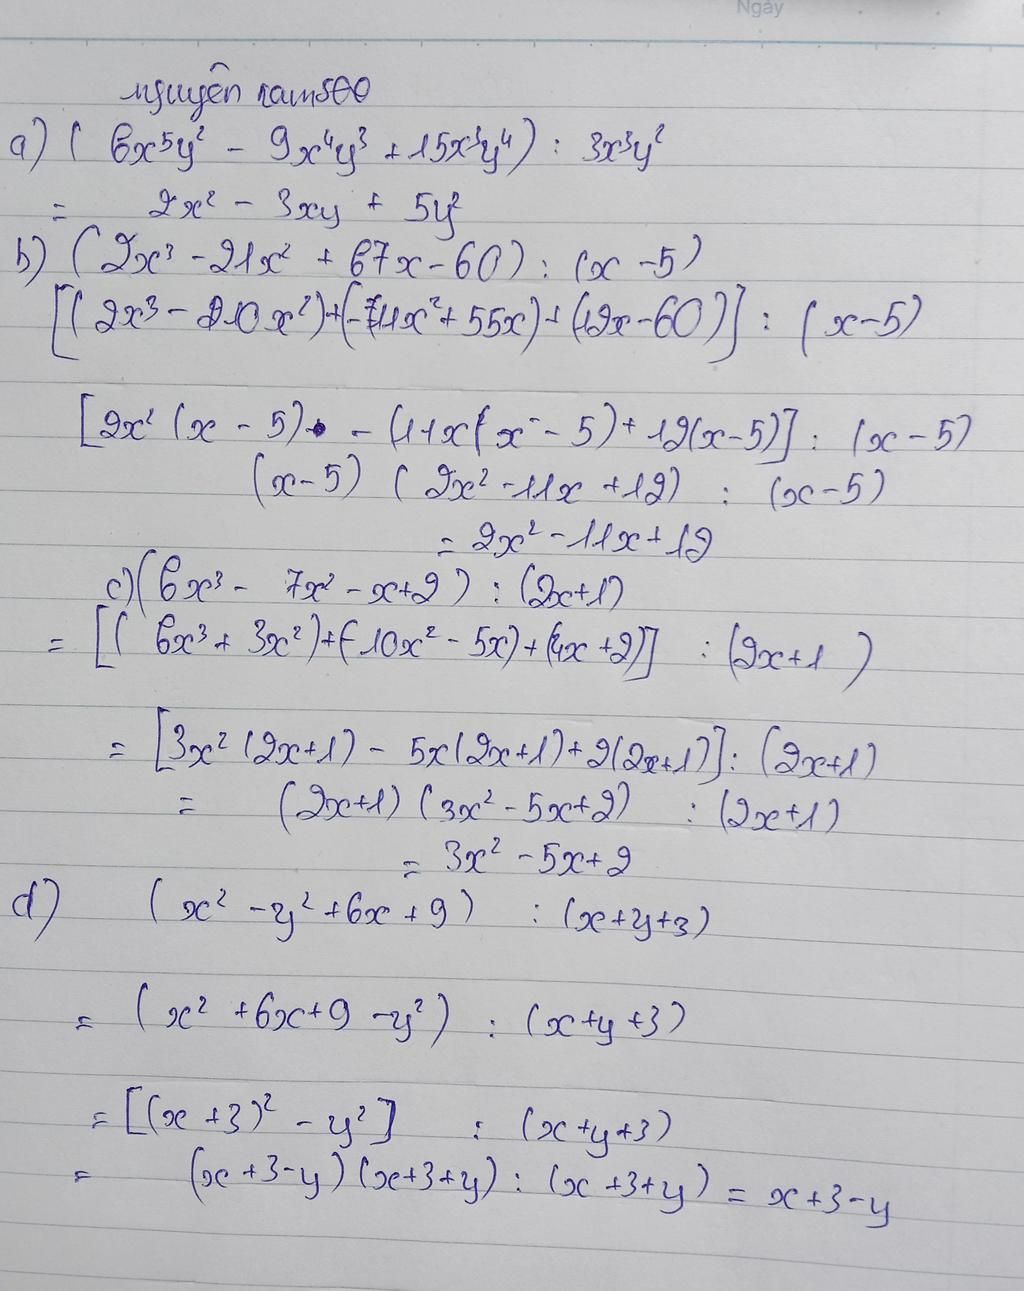 Ngày
nguyên nam500
a) ( 6x⁵y² - 9x⁴y³ + 15x³y⁴) : 3x³y²
= 2x² - 3xy + 5y²
b) (2x³ - 21x² + 67x - 60) : (x - 5)
[(2x³ - 10x²)+(-11x² + 55x)+(12x-60)] : (x-5)
[2x² (x - 5) - (11x(x - 5) + 12(x-5)] : (x - 5)
(x-5) (2x² -11x +12) : (x-5)
= 2x² -11x+12
c)(6x³ - 7x² - x+2) : (2x+1)
= [( 6x³ + 3x²)+(-10x² - 5x)+(4x +2)] : (2x+1)
= [3x² (2x+1) - 5x(2x+1)+2(2x+1)] : (2x+1)
= (2x+1) (3x² - 5x+2) : (2x+1)
= 3x² - 5x+2
d) (x² -y² +6x +9) : (x+y+3)
= (x² +6x+9 -y²) : (x+y+3)
= [(x +3)² - y²] : (x+y+3)
= (x+3-y) (x+3+y) : (x+3+y) = x+3-y